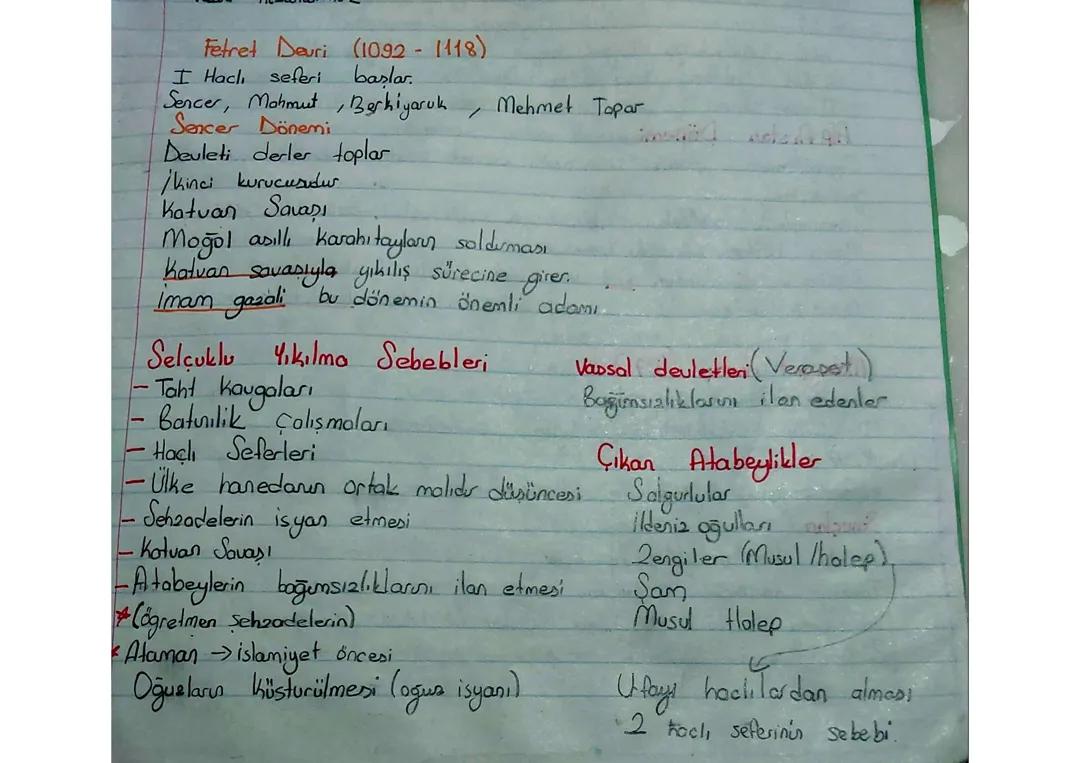 Fetret Devri (1092 - 1118)
I Haçlı seferi başlar.
Sencer, Mahmut, Berkiyaruk, Mehmet Tapar
Sencer Dönemi
Devleti derler toplar
İkinci kurucusudur
Katvan Savaşı
Moğol asıllı Karahıtayların saldırması
Katvan savaşıyla yıkılış sürecine girer.
İmam gazali bu dönemin önemli adamı.
Selçuklu Yıkılma Sebebleri
- Taht Kavgaları
- Batınilik Çalışmaları
- Haçlı Seferleri
- Ülke hanedanın ortak malıdır düşüncesi
- Şehzadelerin isyan etmesi
- Katvan Savaşı
- Atabeylerin bağımsızlıklarını ilan etmesi
* (öğretmen şehzadelerin)
* Ataman → islamiyet öncesi
Oğuzların küstürülmesi (oğuz isyanı)
Vassal devletleri (Veraset)
Bağımsızlıklarını ilan edenler
Çıkan Atabeylikler
Salgurlular
ildeniz oğulları
Zengiler (Musul / halep)
Şam
Musul Halep
Urfayı haçlılardan alması
2 haçlı seferinin sebebi.